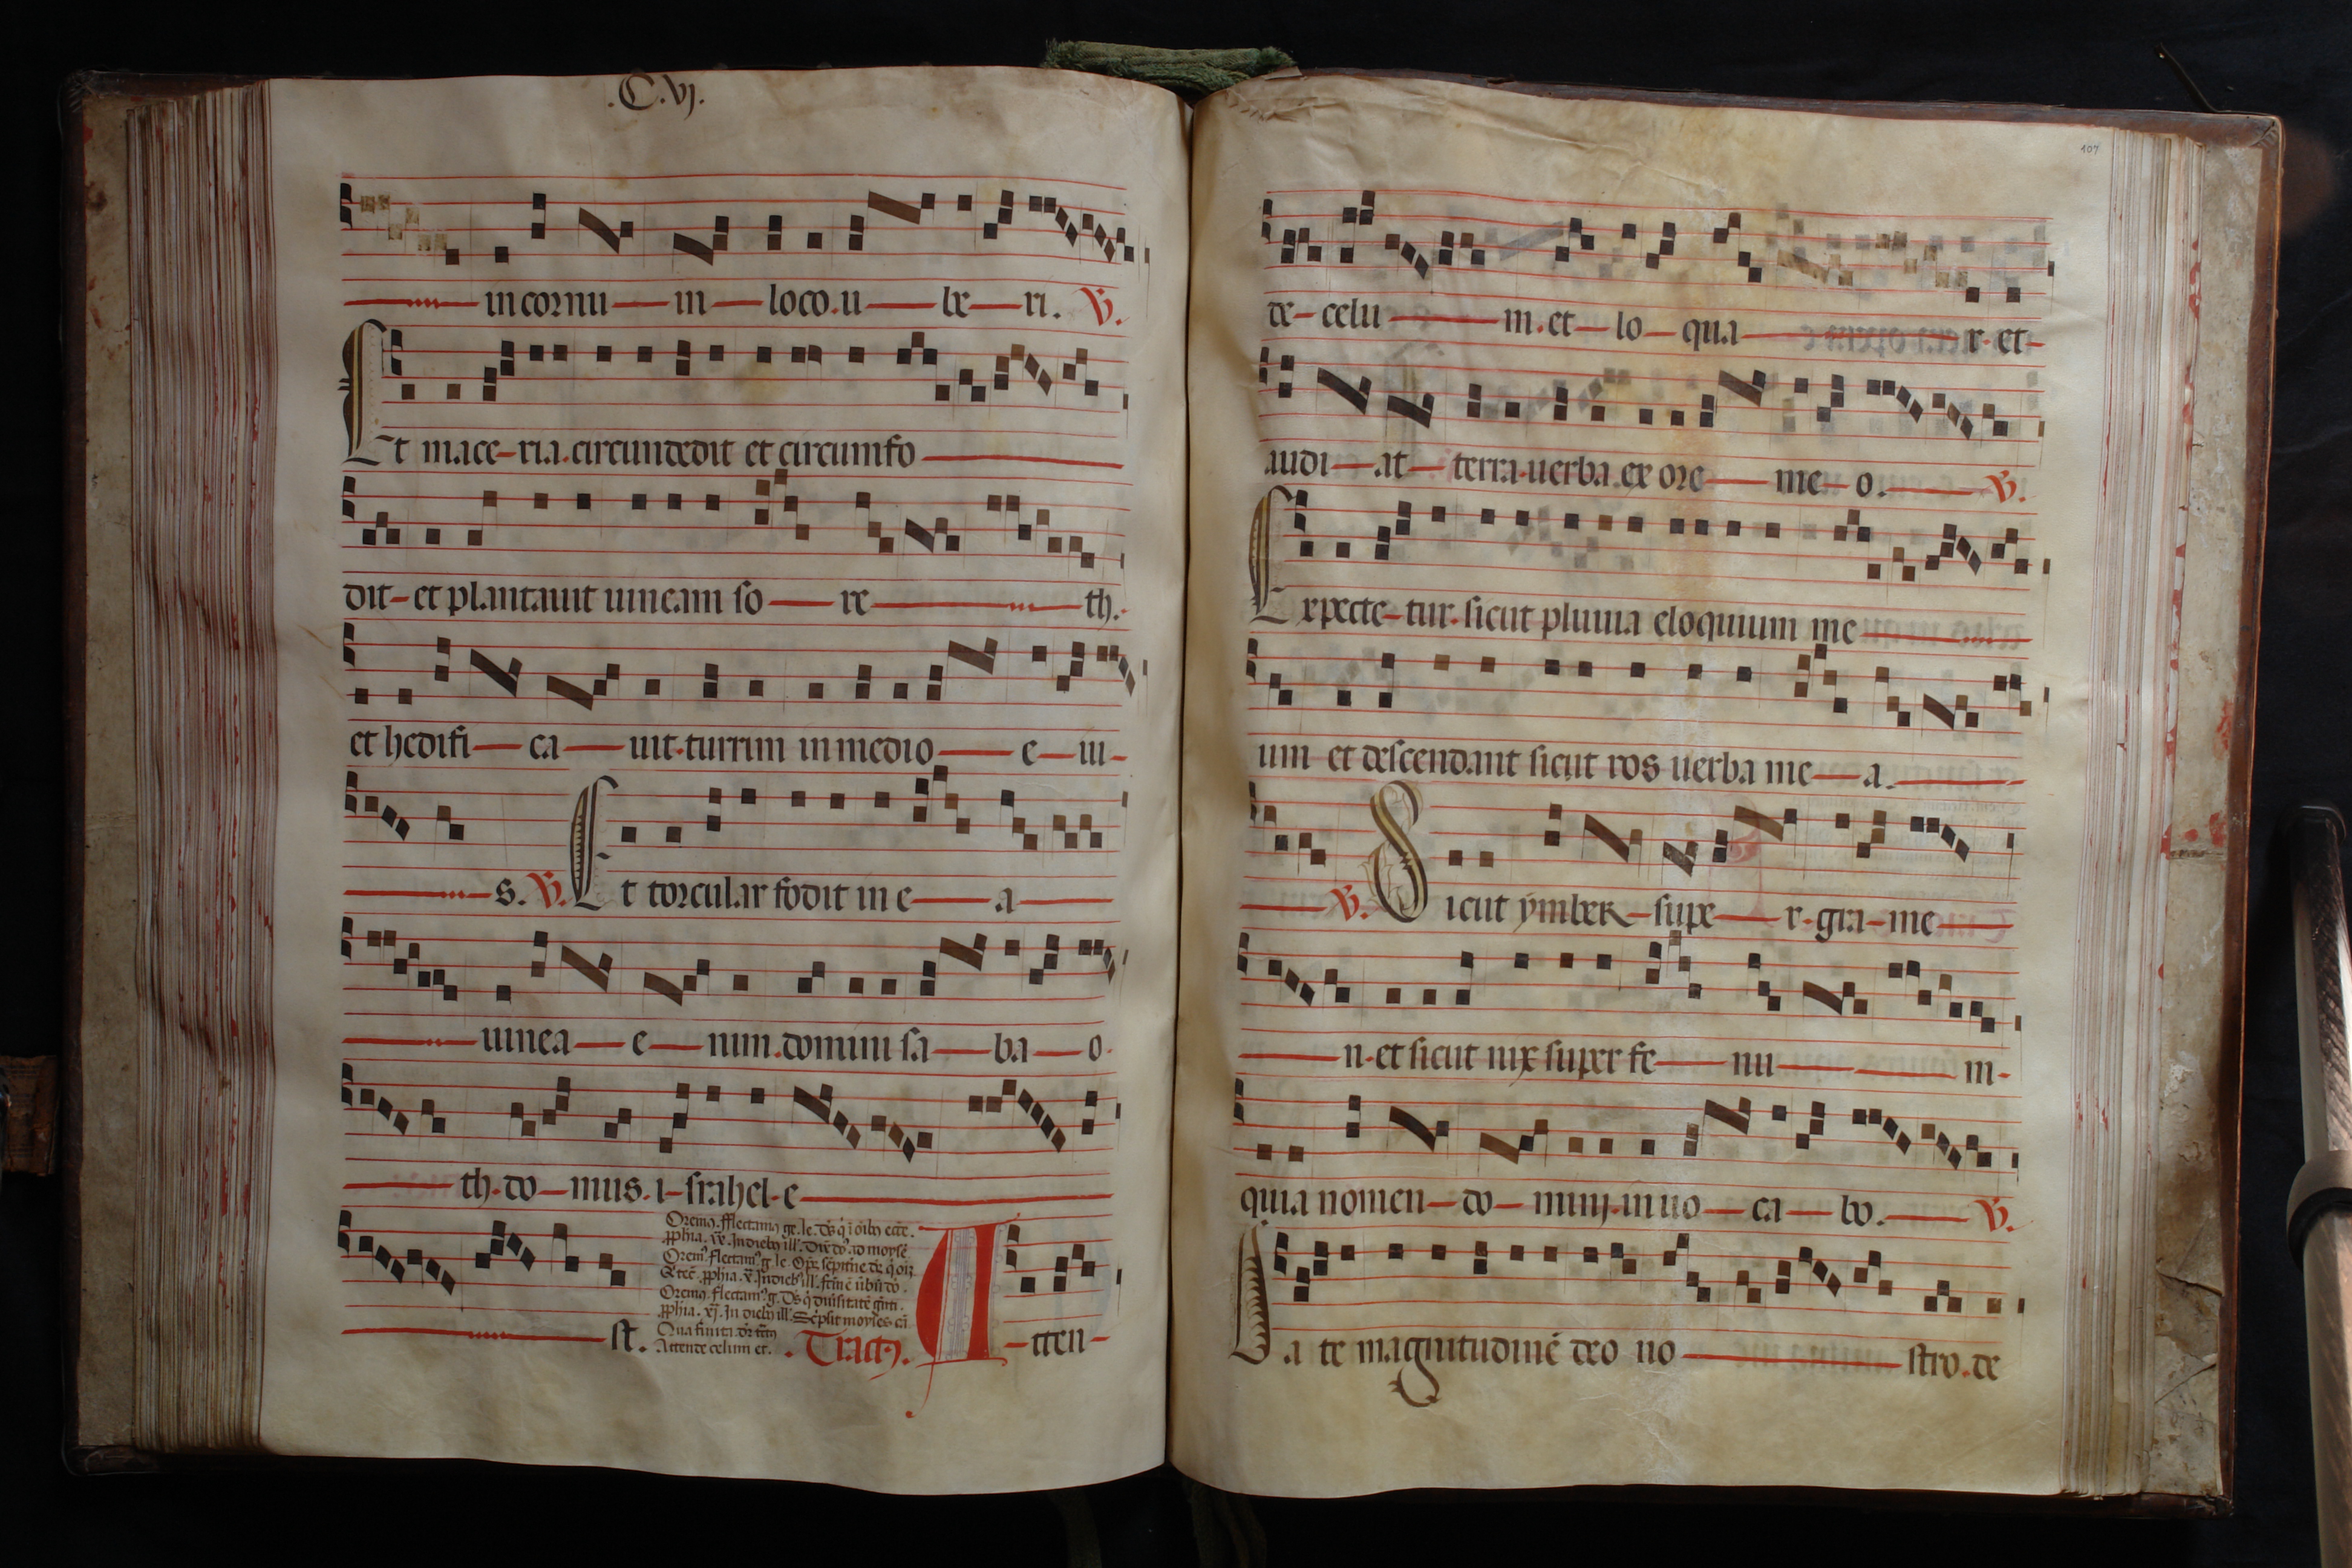 .C.vj.
in cornu in loco.u be ri. V.
Et mace-ria.circundedit et circumfo
dit-et plantauit uineam so re th.
et hedifi ca uit.turrim in medio e iu-
s. V. Et torcular fodit in e a
uinea e nim.domini sa ba o.
th.do mus.i-srahel-e
st.
Oremus. fflectamus ge. le. ds q i oibus ecce.
pphia. ix. In diebus ill'. Dixit do. ad moysē
Orem'. flectam' g. le. Ops sēpitne ds q̇
&tcē. pphia. x. In dieb' ill'.
Orem'. flectam' g. Ds q̇ diuīsitatē gnti.
pphia. xj. In diebus ill'. Sc̄psit moyses cā
Qua finita. dr tc̄tus
Attende celum et. . Tractus. A-tten-
107
de-celu m.et lo qua r.et-
audi at terra.uerba.ex ore me o. V.
Expecte-tur.sicut pluuia eloquium me
um et descendant sicut ros uerba me a.
V. Sicut ymber-supe r-gra-me
n.et sicut nix super fe nu m-
quia nomen do minj.in uo ca bo. V.
Da te magnitudinē deo no stro.de